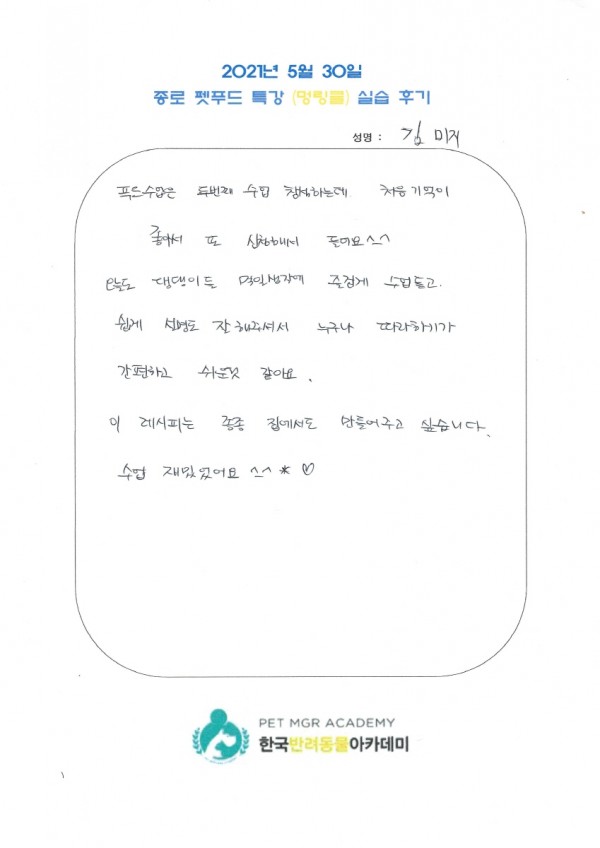 2021년 5월 30일
종로 펫푸드 특강 (멍링물) 실습 후기
성명 : 김 미지
푸드수업은 두번째 수업 참석하는데. 처음기억이
좋아서 또 신청해서 들어요^^
오늘도 댕댕이들 먹일생각에 즐겁게 수업듣고.
쉽게 설명도 잘해주셔서 누구나 따라하기가
간편하고 쉬운것 같아요.
이 레시피는 종종 집에서도 만들어주고 싶습니다.
수업 재밌었어요 ^^ * ♡
PET MGR ACADEMY
한국반려동물아카데미